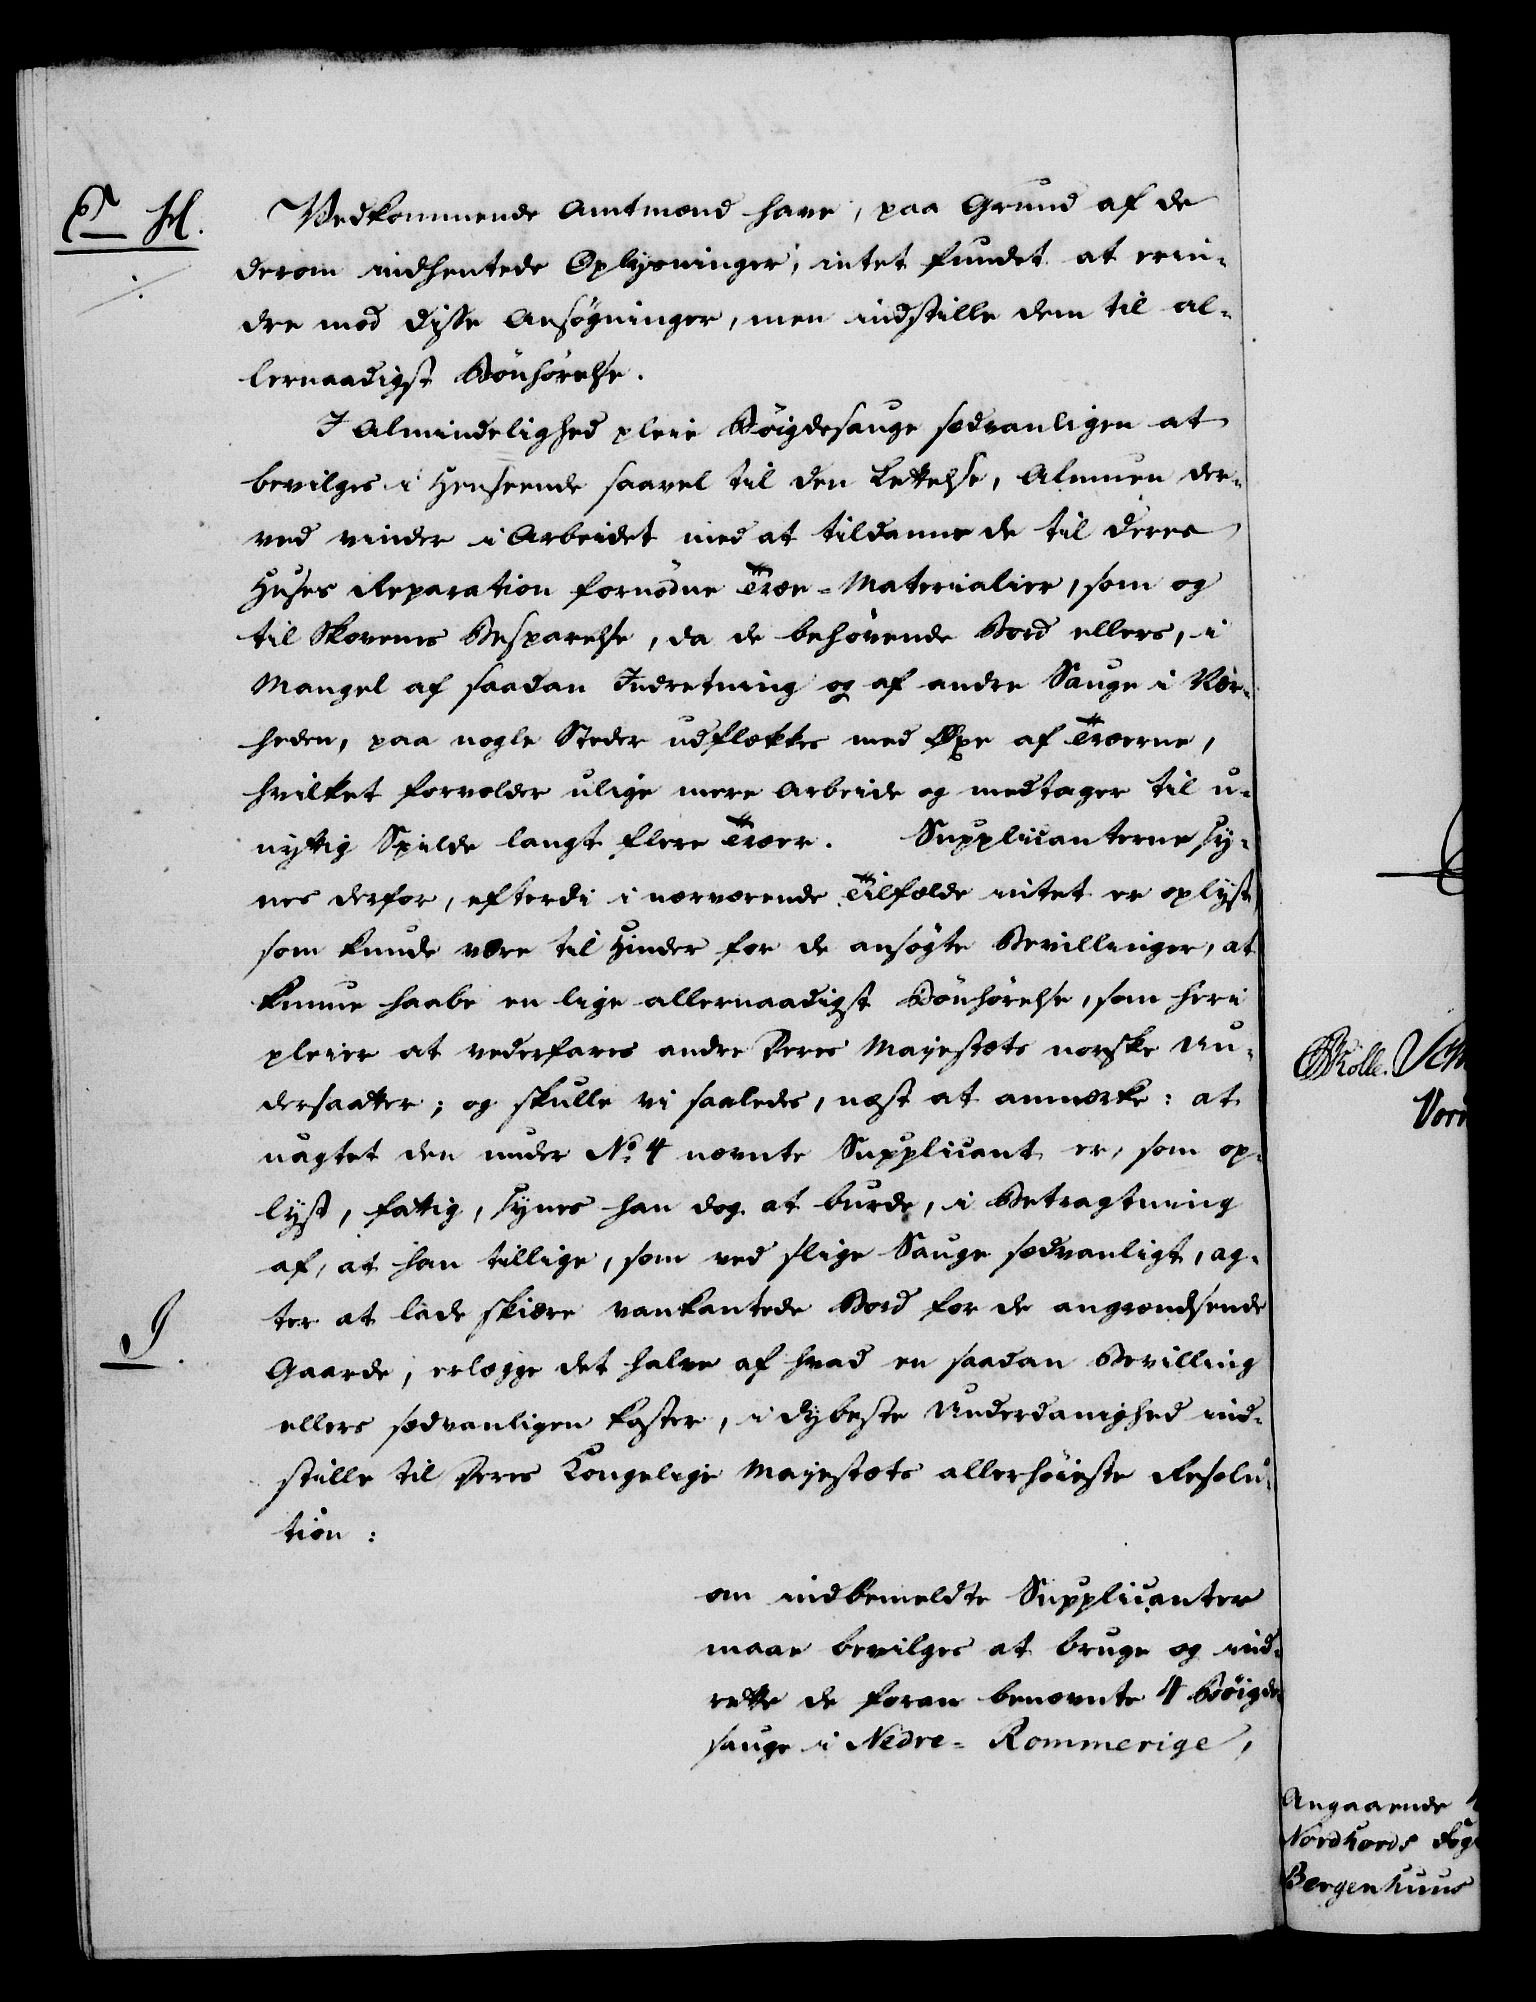 E H.
Vedkommende Amtmænd have, paa Grund af de
derom indhentede Oplysninger, intet fundet at erin-
dre mod disse Ansøgninger, men indstille dem til al-
lernaadigst Bønhørelse.
I Almindelighed pleie Bøigdesauge sædvanligen at
bevilges i Henseende saavel til den Lettelse, Almuen der-
ved vinder i Arbeidet med at tildanne de til deres
Huses Reparation fornødne Træe-Materialier, som og
til Skovenes Besparelse, da de behøvende Bord ellers, i
Mangel af saadan Indretning og af andre Sauge i Nær-
heden, paa nogle Steder udflækkes med Øxe af Træerne,
hvilket forvolder ulige mere Arbeide og medtager til u-
nyttig Spilde langt flere Træer. Supplicanterne sy-
nes derfor, efterdi i nærværende Tilfælde intet er oplyst,
som kunde være til Hinder for de ansøgte Bevillinger, at
kunne haabe en lige allernaadigst Bønhørelse, som heri
pleier at vederfares andre Deres Majestæts norske Un-
dersaatter; og skulle vi saaledes, næst at anmærke: at
uagtet den under No. 4 nævnte Supplicant er, som op-
lyst, fattig, synes han dog at burde, i Betragtning
af, at han tillige, som ved slige Sauge sædvanligt, ag-
ter at lade skiære vankantede Bord for de angrændsende
I.
Gaarde, erlægge det halve af hvad en saadan Bevilling
ellers sædvanligen koster, i dybeste Underdanighed ind-
stille til Deres Kongelige Majestæts allerhøieste Resolu-
tion:
om indbemeldte Supplicanter
maae bevilges at bruge og ind-
rette de foran benævnte 4 Bøigde-
sauge i Nedre-Rommerige,
Angaaende
Nordhords Fog
Bergenhuus